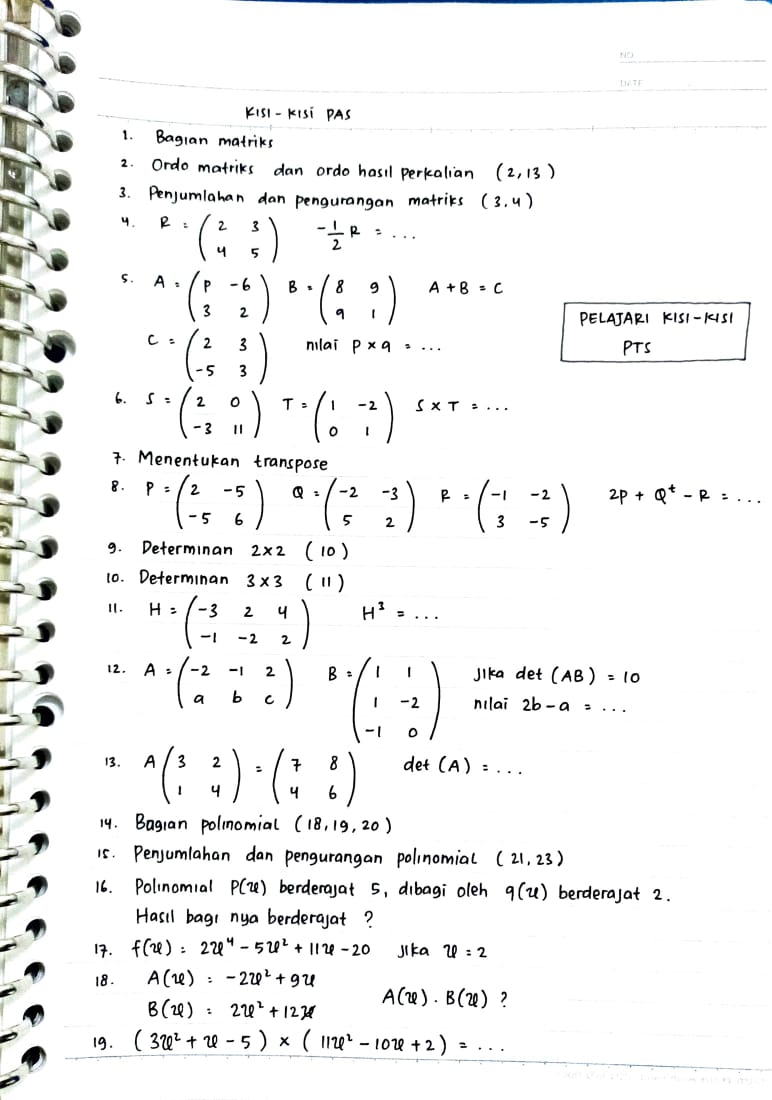 NO
DATE
KISI - KISI PAS
1. Bagian matriks
2. Ordo matriks dan ordo hasil perkalian (2,13)
3. Penjumlahan dan pengurangan matriks (3,4)
4. R = (2 3 -1/2 R = ...
4 5)
5. A = (P -6 B = (8 9 A + B = C
3 2) q 1)
PELAJARI KISI-KISI
PTS
C = (2 3 nilai p x q = ...
-5 3)
6. S = (2 0 T = (1 -2 S x T = ...
-3 11) 0 1)
7. Menentukan transpose
8. P = (2 -5 Q = (-2 -3 R = (-1 -2 2P + Qᵗ - R = ...
-5 6) 5 2) 3 -5)
9. Determinan 2x2 (10)
10. Determinan 3x3 (11)
11. H = (-3 2 4 H³ = ...
-1 -2 2)
12. A = (-2 -1 2 B = (1 1 Jika det (AB) = 10
a b c) 1 -2 nilai 2b-a = ...
-1 0)
13. A (3 2 = (7 8 det (A) = ...
1 4) 4 6)
14. Bagian polinomial (18, 19, 20)
15. Penjumlahan dan pengurangan polinomial (21, 23)
16. Polinomial P(x) berderajat 5, dibagi oleh q(x) berderajat 2.
Hasil bagi nya berderajat ?
17. f(x) = 2x⁴ - 5x² + 11x - 20 Jika x = 2
18. A(x) = -2x² + 9x
B(x) = 2x² + 12x A(x) . B(x) ?
19. (3x² + x - 5) x (11x² - 10x + 2) = ...